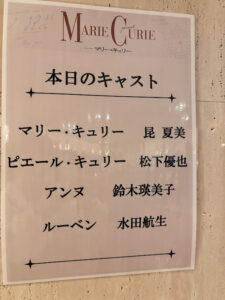 MARIE CURIE
マリー・キュリー
本日のキャスト
マリー・キュリー 昆 夏美
ピエール・キュリー 松下優也
アンヌ 鈴木瑛美子
ルーベン 水田航生